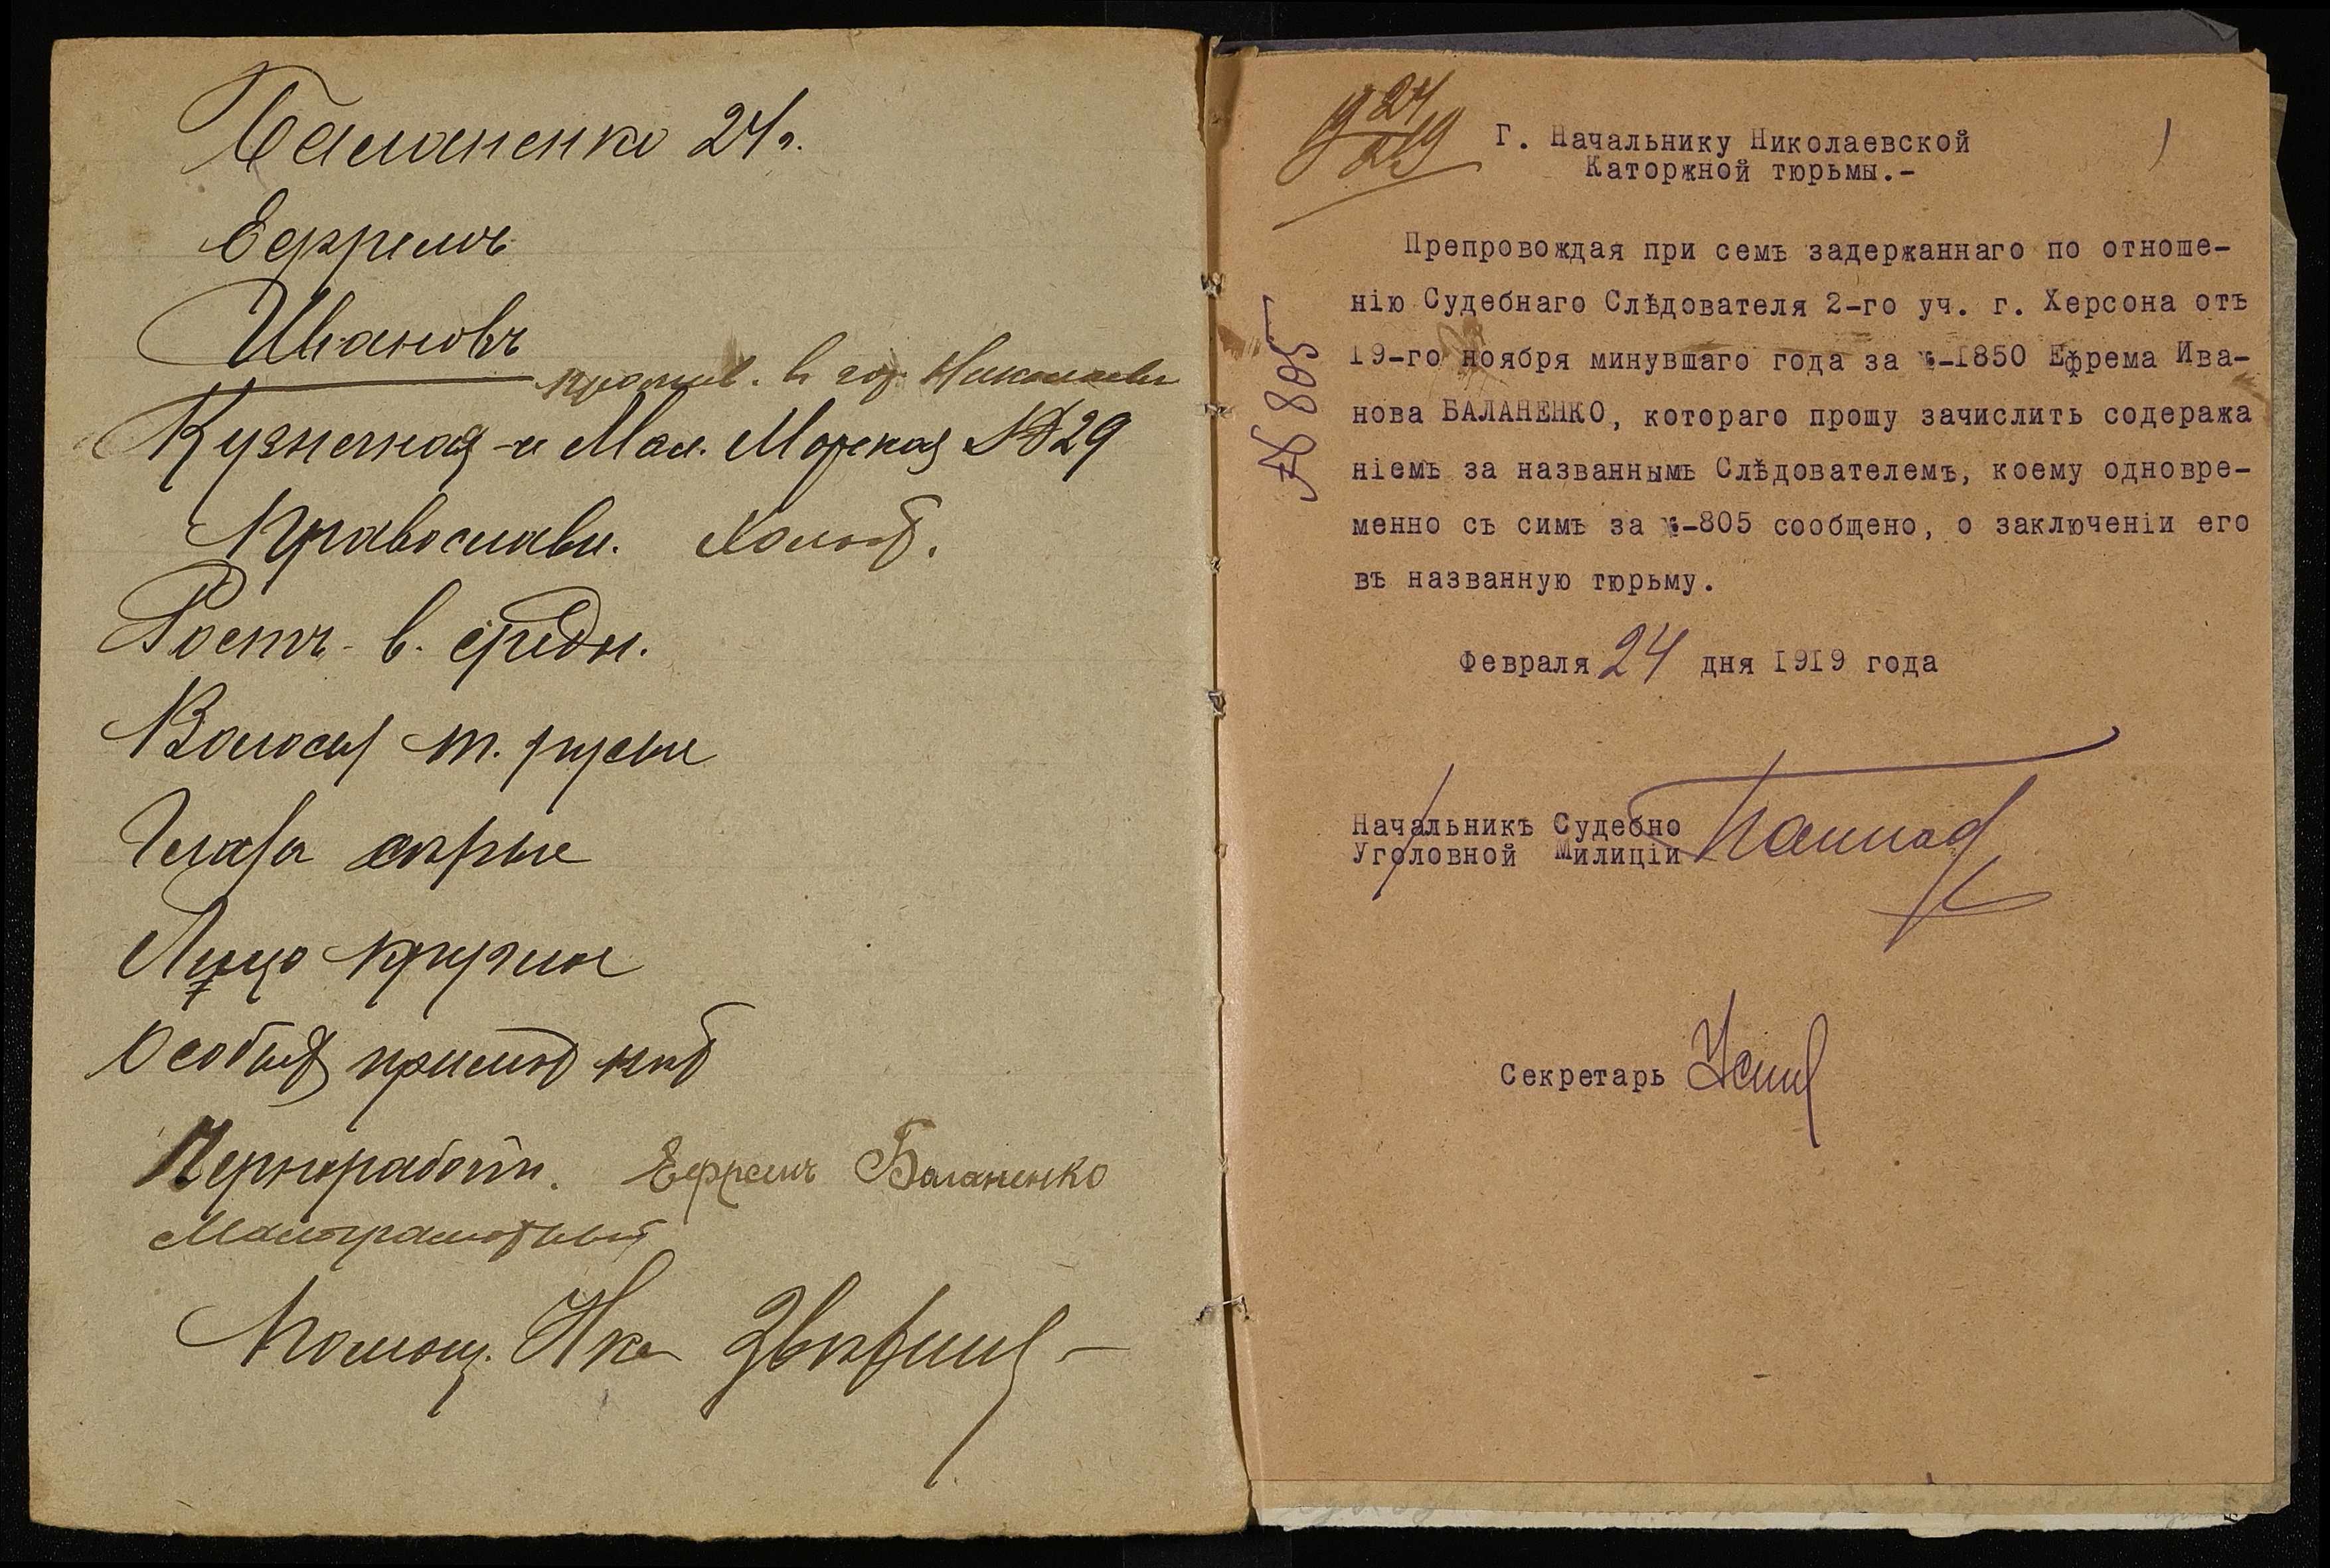 Баланенко 24 г.
Ефремъ
Ивановъ
прожив. в гор. Николаеве
Кузнечная и Мал. Морская № 29
Православн. Холост.
Ростъ в. средн.
Волосы т. русые
Глаза карые
Лицо круглое
Особых примѣт нѣт
Чернорабочи.
Ефремъ Баланенко
Малограмотный
Помощ. Нка
24
19 II 19
Г. Начальнику Николаевской
Каторжной тюрьмы.-
1
Препровождая при семъ задержаннаго по отноше-
нію Судебнаго Слѣдователя 2-го уч. г. Херсона отъ
19-го ноября минувшаго года за №-1850 Ефрема Ива-
нова БАЛАНЕНКО, котораго прошу зачислить содеража
ніемъ за названнымъ Слѣдователемъ, коему одновре-
менно съ симъ за №-805 сообщено, о заключеніи его
въ названную тюрьму.
№ 805
Февраля 24 дня 1919 года
Начальникъ Судебно
Уголовной Милиціи
Секретарь